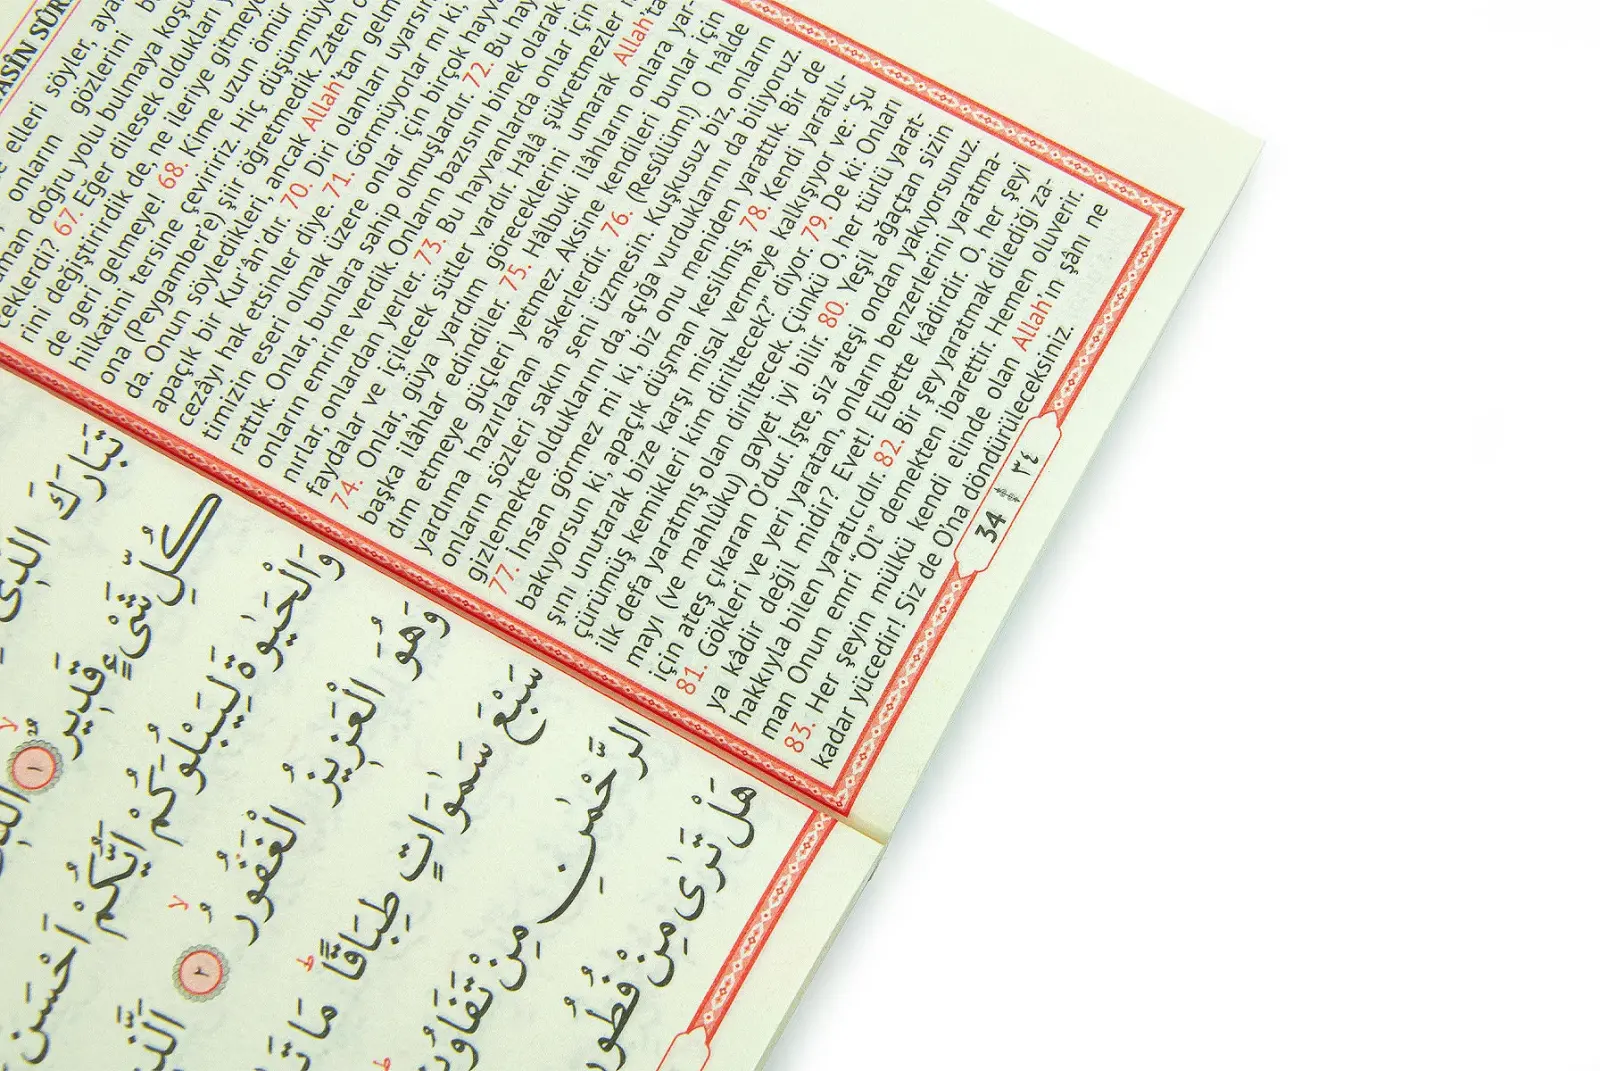 ASÎN SÛR
e elleri söyler, aya
onların gözlerini b
man doğru yolu bulmaya koşu
ceklerdi? 67. Eğer dilesek oldukları y
rini değiştirirdik de, ne ileriye gitmeye
de geri gelmeye! 68. Kime uzun ömür
hilkatini tersine çeviririz. Hiç düşünmüyo
ona (Peygambere) şiir öğretmedik. Zaten o
da. Onun söyledikleri, ancak Allah'tan gelm
apaçık bir Kur'ân'dır. 70. Diri olanları uyarsın
cezâyı hak etsinler diye. 71. Görmüyorlar mı ki,
timizin eseri olmak üzere onlar için birçok hayv
rattık. Onlar, bunlara sahip olmuşlardır. 72. Bu hay
onların emrine verdik. Onların bazısını binek olarak
nırlar, onlardan yerler. 73. Bu hayvanlarda onlar için
faydalar ve içilecek sütler vardır. Hâlâ şükretmezler m
74. Onlar, güya yardım göreceklerini umarak Allah'ta
başka ilâhlar edindiler. 75. Hâlbuki ilâhların onlara yar-
dım etmeye güçleri yetmez. Aksine kendileri bunlar için
yardıma hazırlanan askerlerdir. 76. (Resûlüm) O hâlde
onların sözleri sakın seni üzmesin. Kuşkusuz biz, onların
gizlemekte olduklarını da, açığa vurduklarını da biliyoruz.
77. İnsan görmez mi ki, biz onu meniden yarattık. Bir de
bakıyorsun ki, apaçık düşman kesilmiş. 78. Kendi yaratılı-
şını unutarak bize karşı misal vermeye kalkışıyor ve: "Şu
çürümüş kemikleri kim diriltecek?" diyor. 79. De ki: Onları
ilk defa yaratmış olan diriltecek. Çünkü O, her türlü yarat-
mayı (ve mahlûku) gayet iyi bilir. 80. Yeşil ağaçtan sizin
için ateş çıkaran O'dur. İşte, siz ateşi ondan yakıyorsunuz.
81. Gökleri ve yeri yaratan, onların benzerlerini yaratma-
ya kâdir değil midir? Evet! Elbette kâdirdir. O, her şeyi
hakkıyla bilen yaratıcıdır. 82. Bir şey yaratmak dilediği za-
man Onun emri "Ol" demekten ibarettir. Hemen oluverir.
83. Her şeyin mülkü kendi elinde olan Allah'ın şânı ne
kadar yücedir! Siz de O'na döndürüleceksiniz.
34 ٣٤
تَبَارَكَ الَّذِي
كُلِّ شَيْءٍ قَدِيرٌ ١
وَالْحَيٰوةَ لِيَبْلُوَكُمْ اَيُّكُمْ اَحْسَنُ
وَهُوَ الْعَزِيزُ الْغَفُورُ ٢ الَّذ
سَبْعَ سَمٰوَاتٍ طِبَاقًا مَا تَ
الرَّحْمٰنِ مِنْ تَفَاوُت
هَلْ تَرٰى مِنْ فُطُور